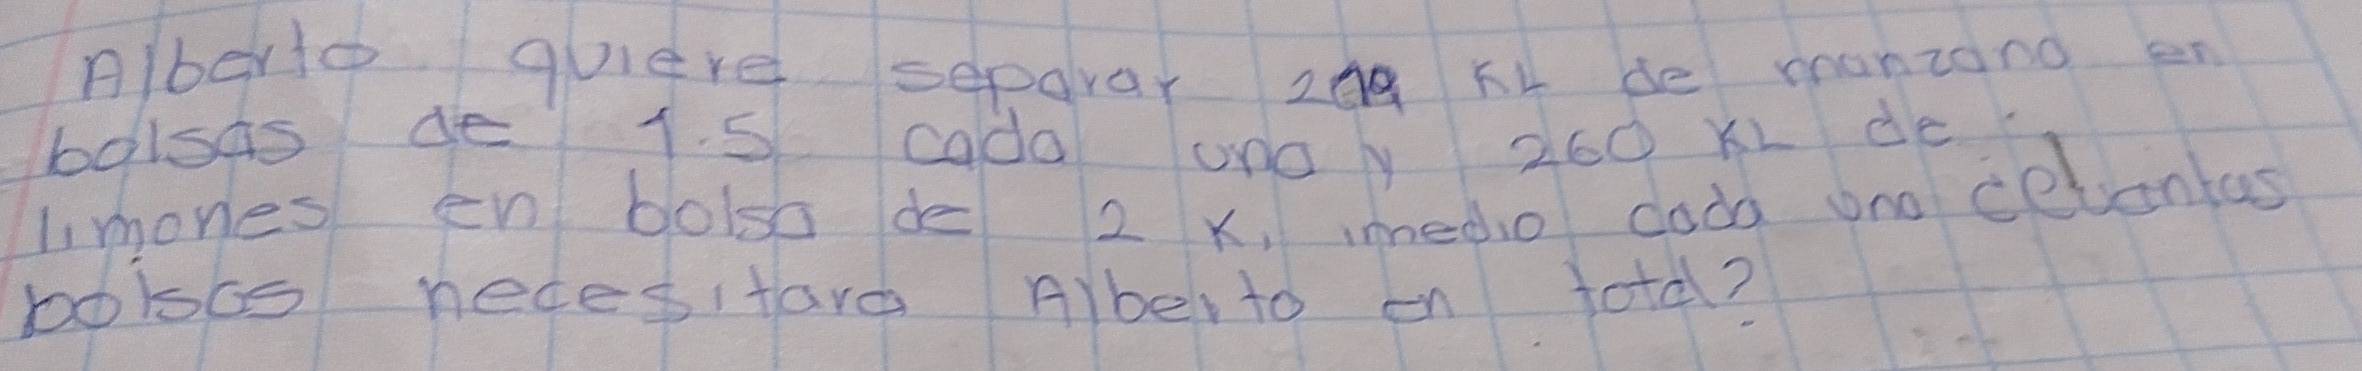 Alberto quiere separar KL de manzana en
bolsas de 1.5 cada una y 260 KL de
limones en bolsa de 2 K. imedio cada una
bolsas necesitara Alberto en total?